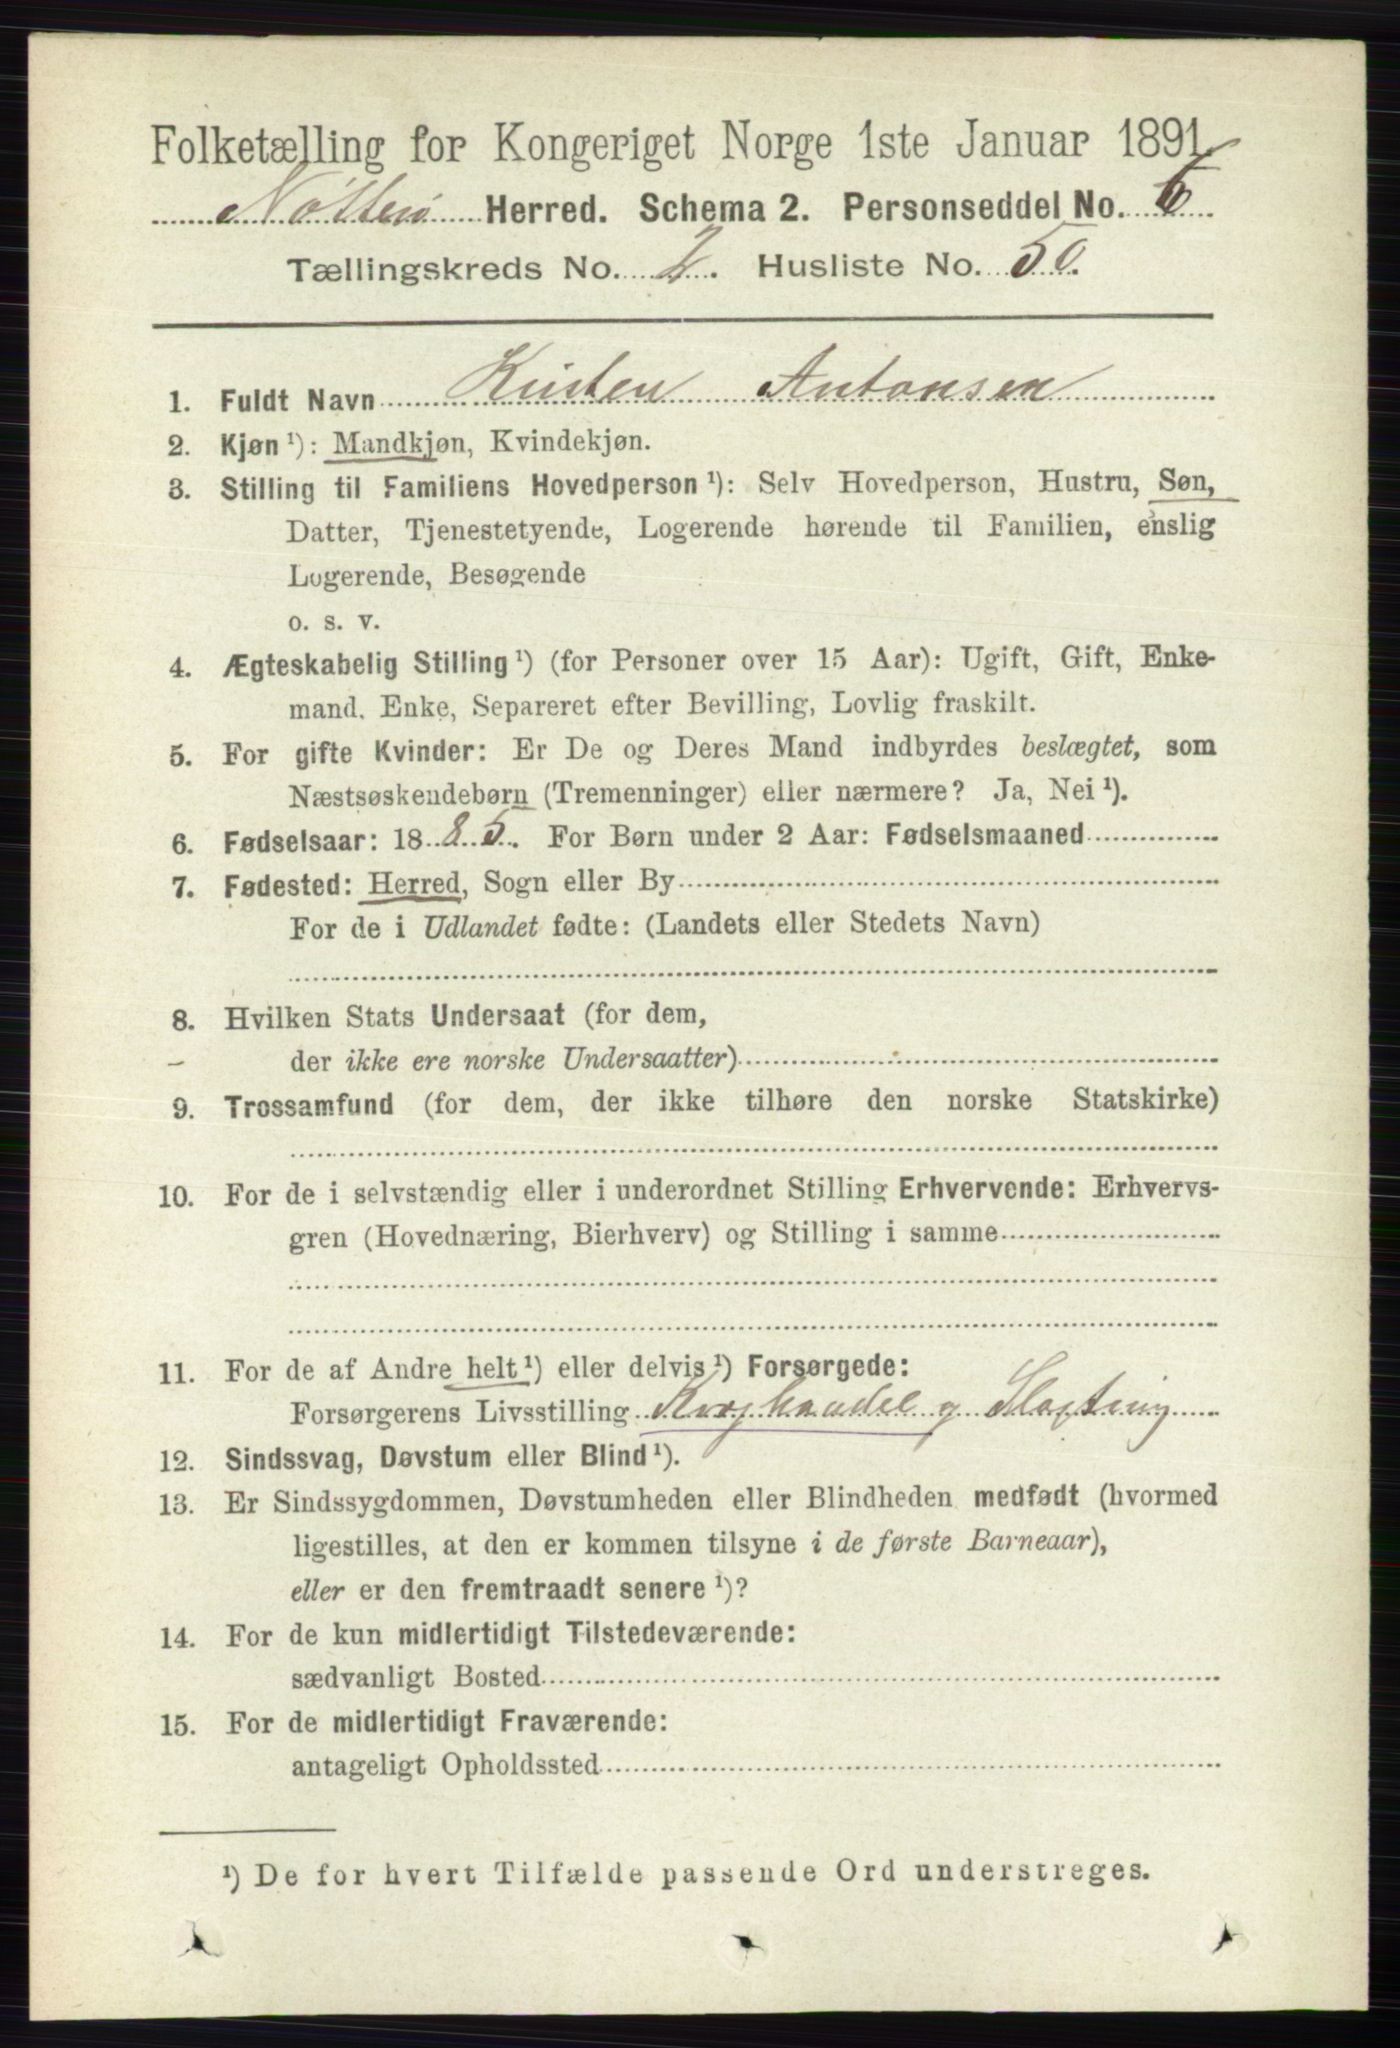 Folketælling for Kongeriget Norge 1ste Januar 1891
Nøtterø Herred. Schema 2. Personseddel No. 6
Tællingskreds No. 2. Husliste No. 50.
1. Fuldt Navn Kristen Antonsen
2. Kjøn ¹): Mandkjøn, Kvindekjøn.
3. Stilling til Familiens Hovedperson ¹): Selv Hovedperson, Hustru, Søn,
Datter, Tjenestetyende, Logerende hørende til Familien, enslig
Logerende, Besøgende
o. s. v.
4. Ægteskabelig Stilling ¹) (for Personer over 15 Aar): Ugift, Gift, Enke-
mand, Enke, Separeret efter Bevilling, Lovlig fraskilt.
5. For gifte Kvinder: Er De og Deres Mand indbyrdes beslægtet, som
Næstsøskendebørn (Tremenninger) eller nærmere? Ja, Nei ¹).
6. Fødselsaar: 1885. For Børn under 2 Aar: Fødselsmaaned
7. Fødested: Herred, Sogn eller By
For de i Udlandet fødte: (Landets eller Stedets Navn)
8. Hvilken Stats Undersaat (for dem,
der ikke ere norske Undersaatter)
9. Trossamfund (for dem, der ikke tilhøre den norske Statskirke)
10. For de i selvstændig eller i underordnet Stilling Erhvervende: Erhvervs-
gren (Hovednæring, Bierhverv) og Stilling i samme
11. For de af Andre helt ¹) eller delvis ¹) Forsørgede:
Forsørgerens Livsstilling Kvæghandel og Slagtning
12. Sindssvag, Døvstum eller Blind ¹).
13. Er Sindssygdommen, Døvstumheden eller Blindheden medfødt (hvormed
ligestilles, at den er kommen tilsyne i de første Barneaar),
eller er den fremtraadt senere ¹)?
14. For de kun midlertidigt Tilstedeværende:
sædvanligt Bosted
15. For de midlertidigt Fraværende:
antageligt Opholdssted
¹) De for hvert Tilfælde passende Ord understreges.